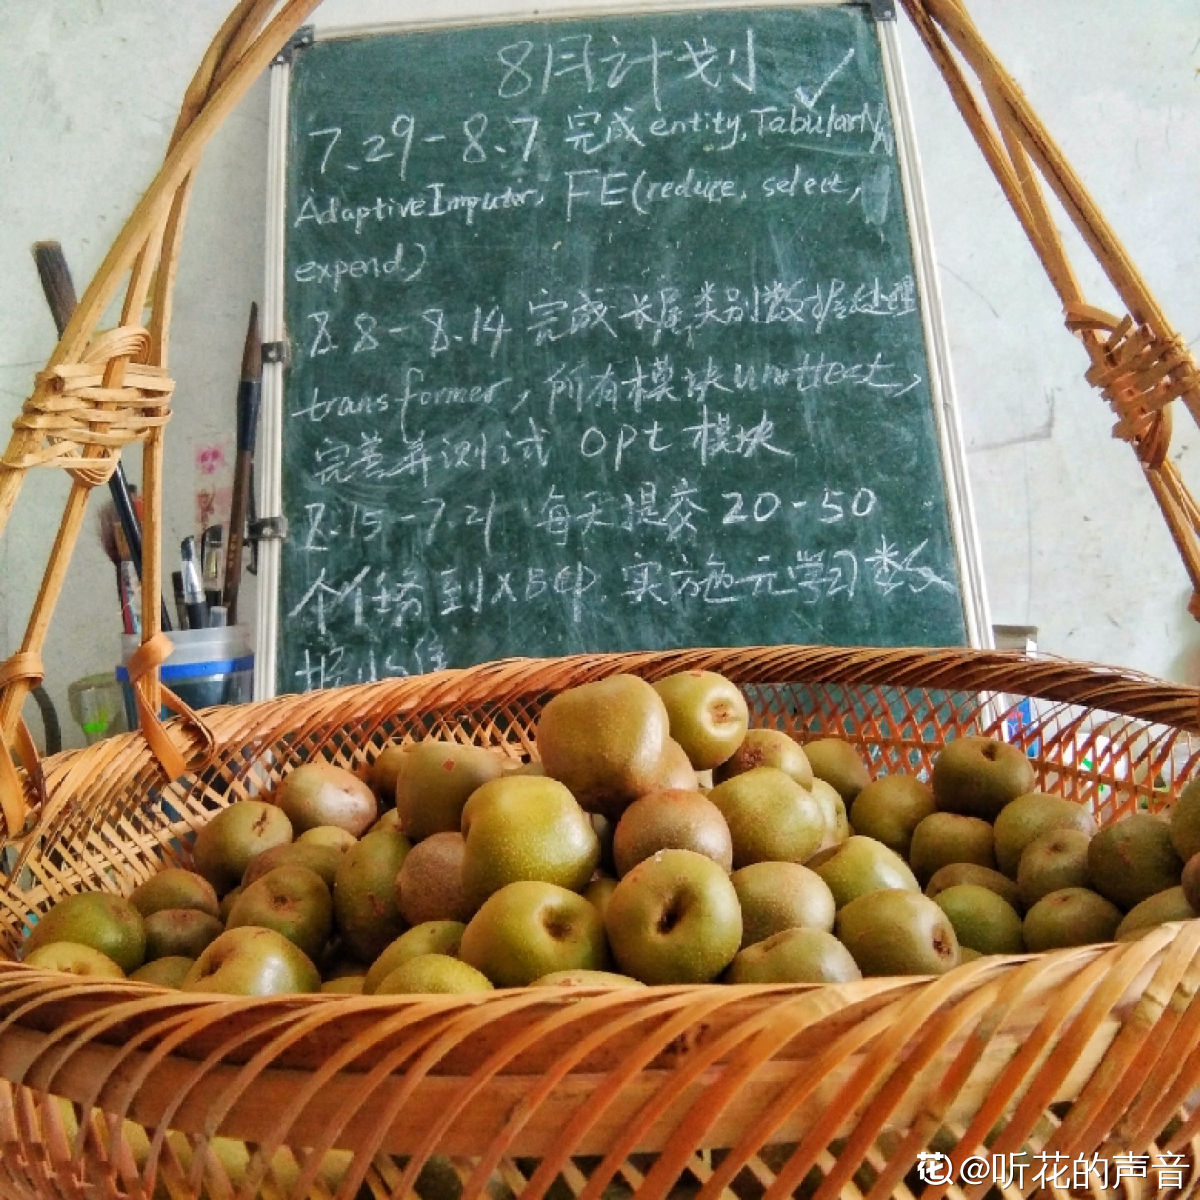 8月计划 ✓
7.29-8.7 完成 entity, TabularNN
AdaptiveImputer, FE(reduce, select,
expend)
8.8-8.14 完成长尾类别数据处理
transformer, 所有模块unittest,
完善并测试 opt 模块
8.15-7.21 每天提交 20-50
个任务到 实施元学习数
据收集
花 @听花的声音